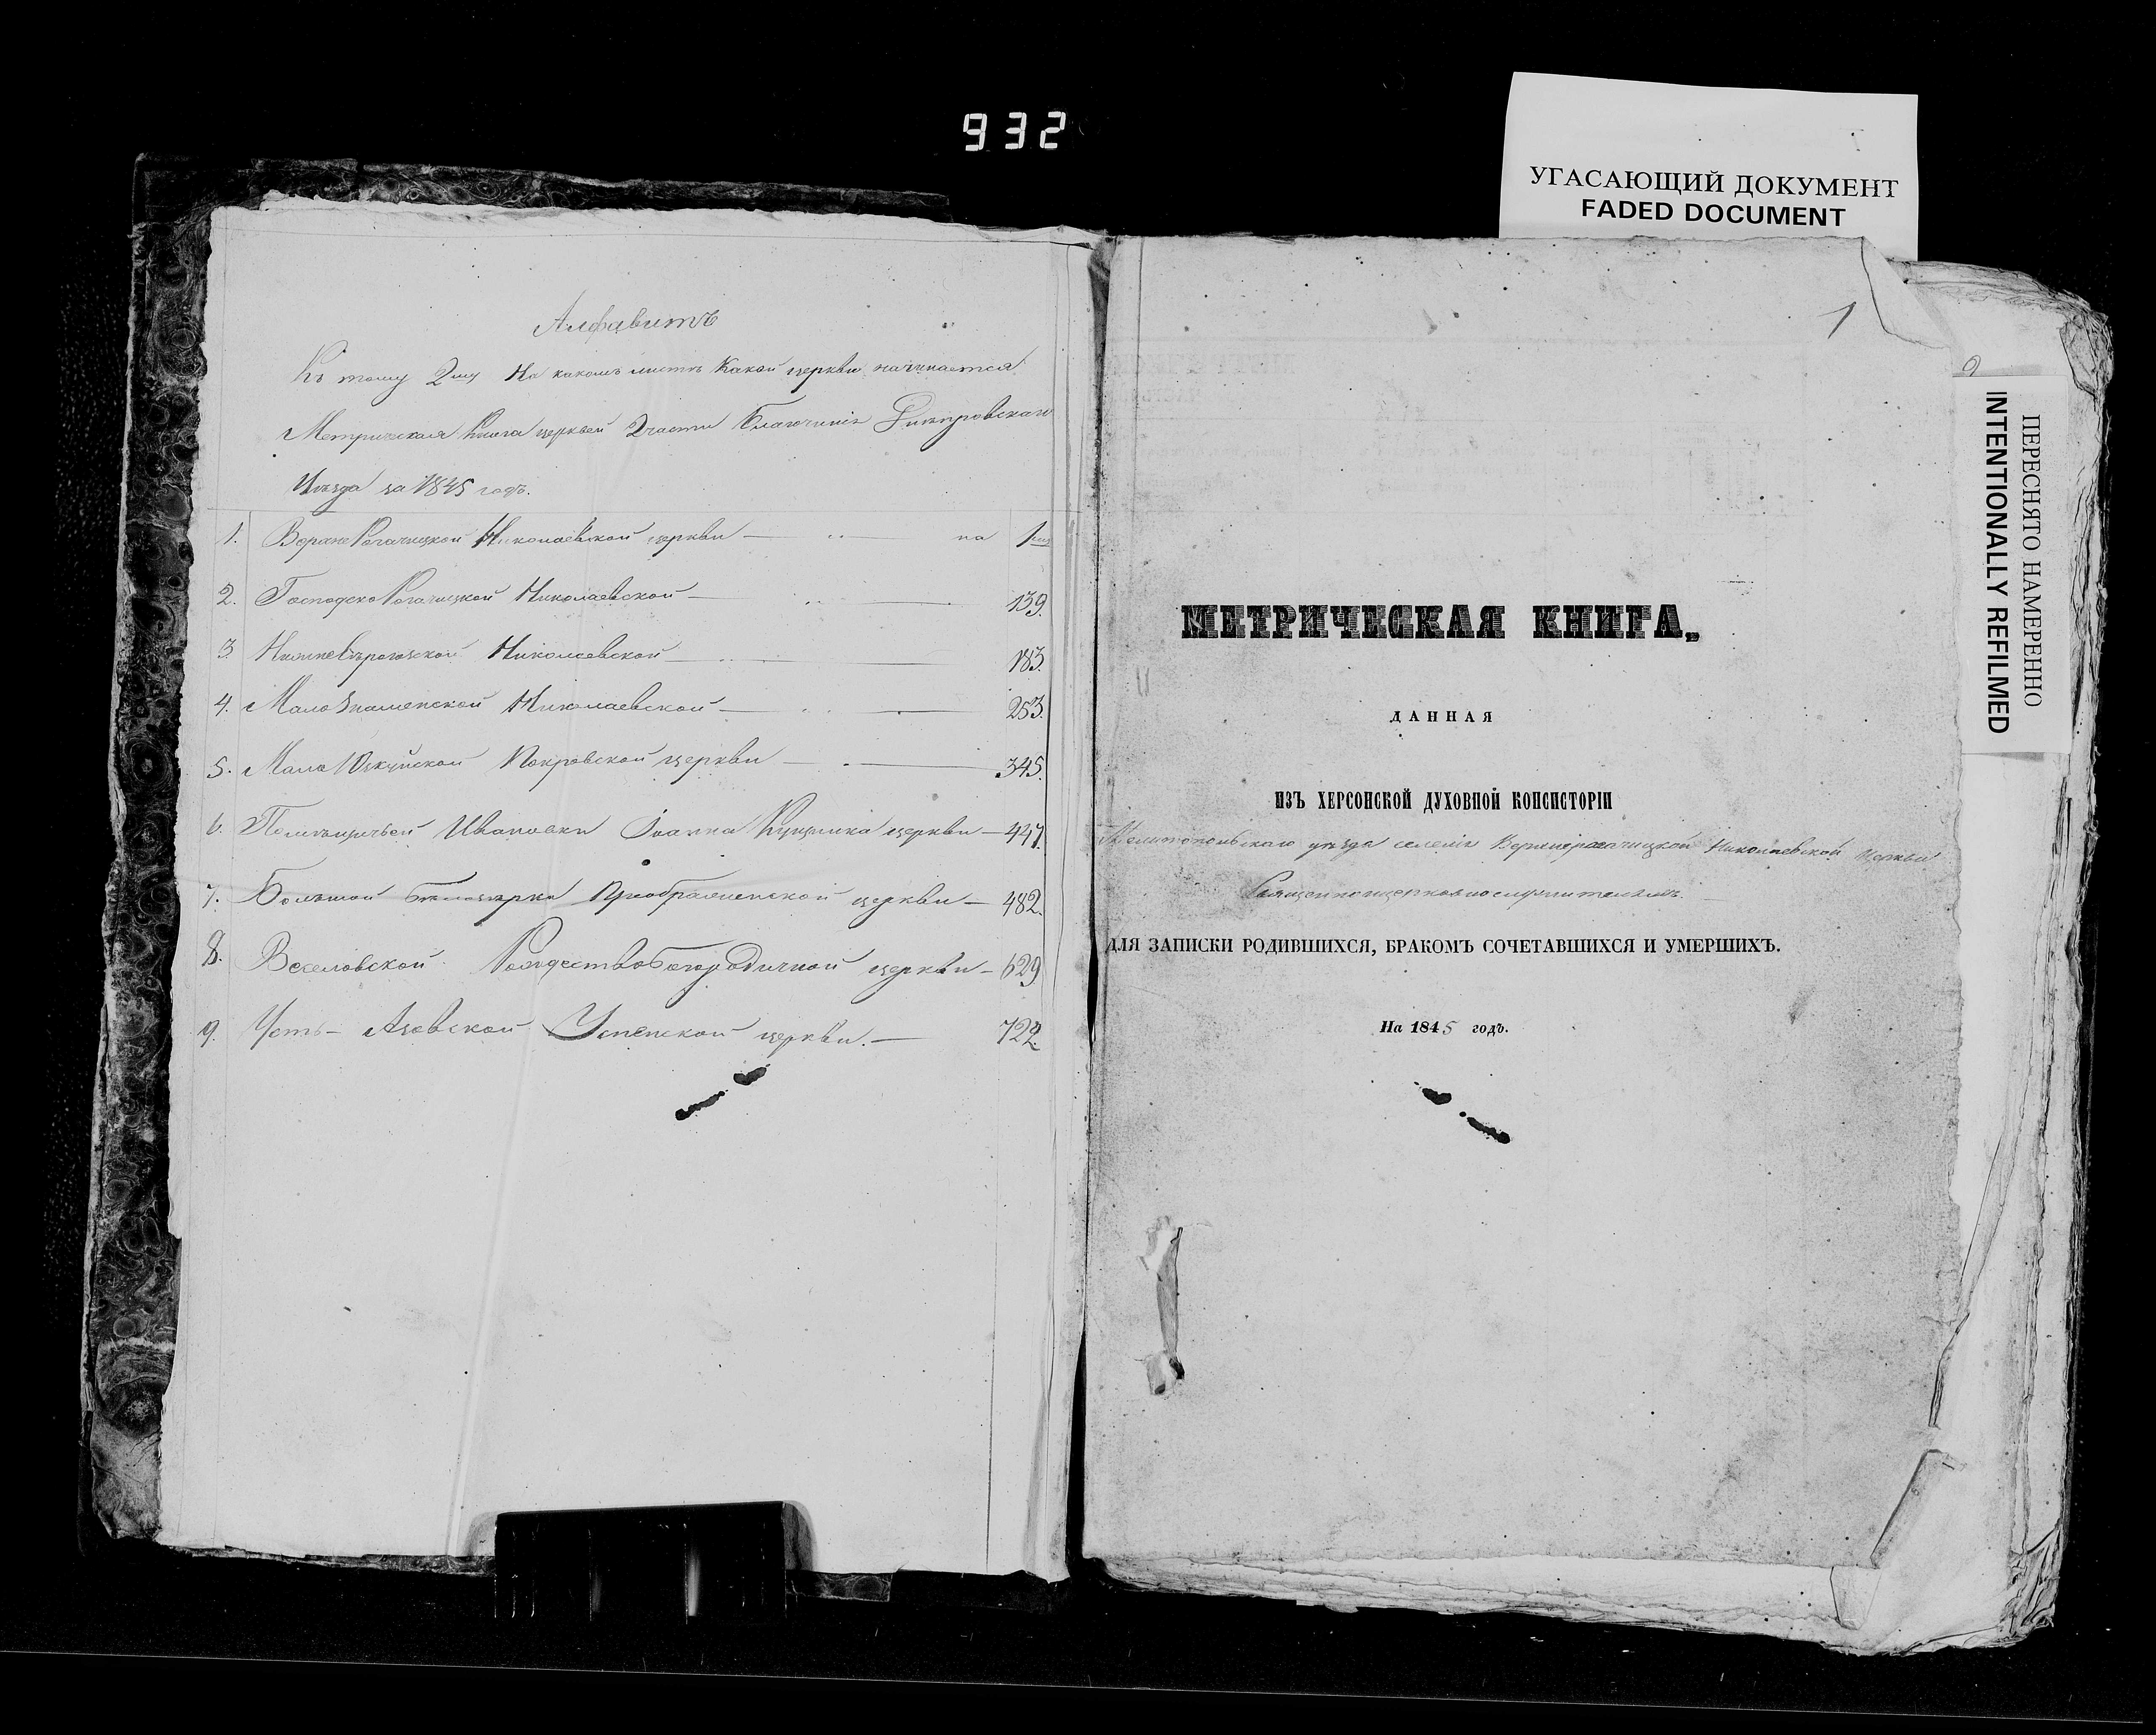 932
УГАСАЮЩИЙ ДОКУМЕНТ
FADED DOCUMENT
Алфавитъ
Къ тому 2му На какомъ листѣ Какой церкви начинается
Метрическая Книга церквей 2 части Благочинія Днѣпровскаго
Уѣзда за 1845 годъ.
1. ВерхнеРогачицкой Николаевской церкви — " на 1
2. ГосподскоРогачицкой Николаевской — " — 139.
3 Николаевской — " — 183.
4. МалоЗнаменской Николаевской — " — 253.
5. Мало Покровской церкви — " — 345.
6. Ивановки Іоанна церкви — 447.
7. Большой Бѣлозерки Преображенской церкви — 482.
8. Веселовской РождествоБогородичной церкви — 629
9. Усть- Азовской Успенской церкви. — 722.
1
МЕТРИЧЕСКАЯ КНИГА,
ДАННАЯ
ИЗЪ ХЕРСОНСКОЙ ДУХОВНОЙ КОНСИСТОРІИ
Мелитопольскаго уѣзда селенія Верхнерогачицкой Николаевской Церкви
Священноцерковнослужителямъ.
ДЛЯ ЗАПИСКИ РОДИВШИХСЯ, БРАКОМЪ СОЧЕТАВШИХСЯ И УМЕРШИХЪ.
На 1845 годъ.
ПЕРЕСНЯТО НАМЕРЕННО
INTENTIONALLY REFILMED